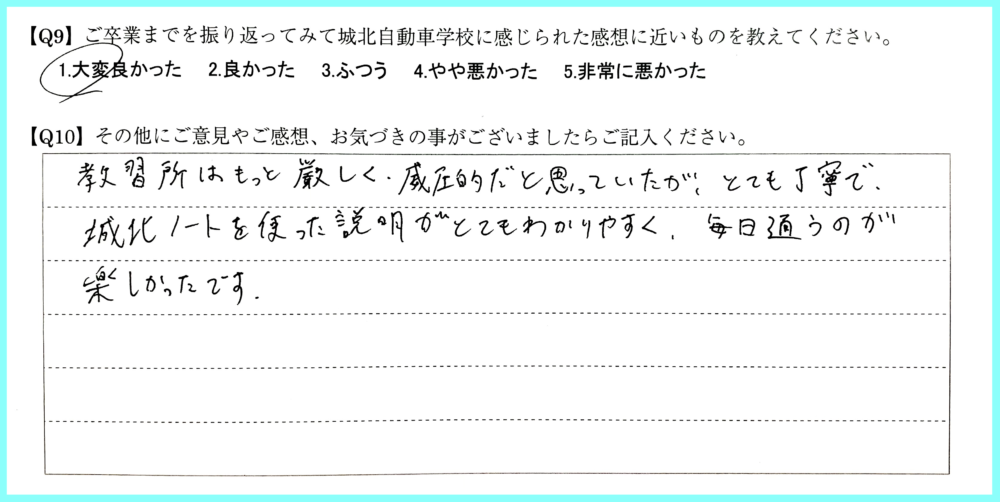 【Q9】ご卒業までを振り返ってみて城北自動車学校に感じられた感想に近いものを教えてください。
1.大変良かった 2.良かった 3.ふつう 4.やや悪かった 5.非常に悪かった
【Q10】その他にご意見やご感想、お気づきの事がございましたらご記入ください。
教習所はもっと厳しく、威圧的だと思っていたが、とても丁寧で、
城北ノートを使った説明がとてもわかりやすく、毎日通うのが
楽しかったです。